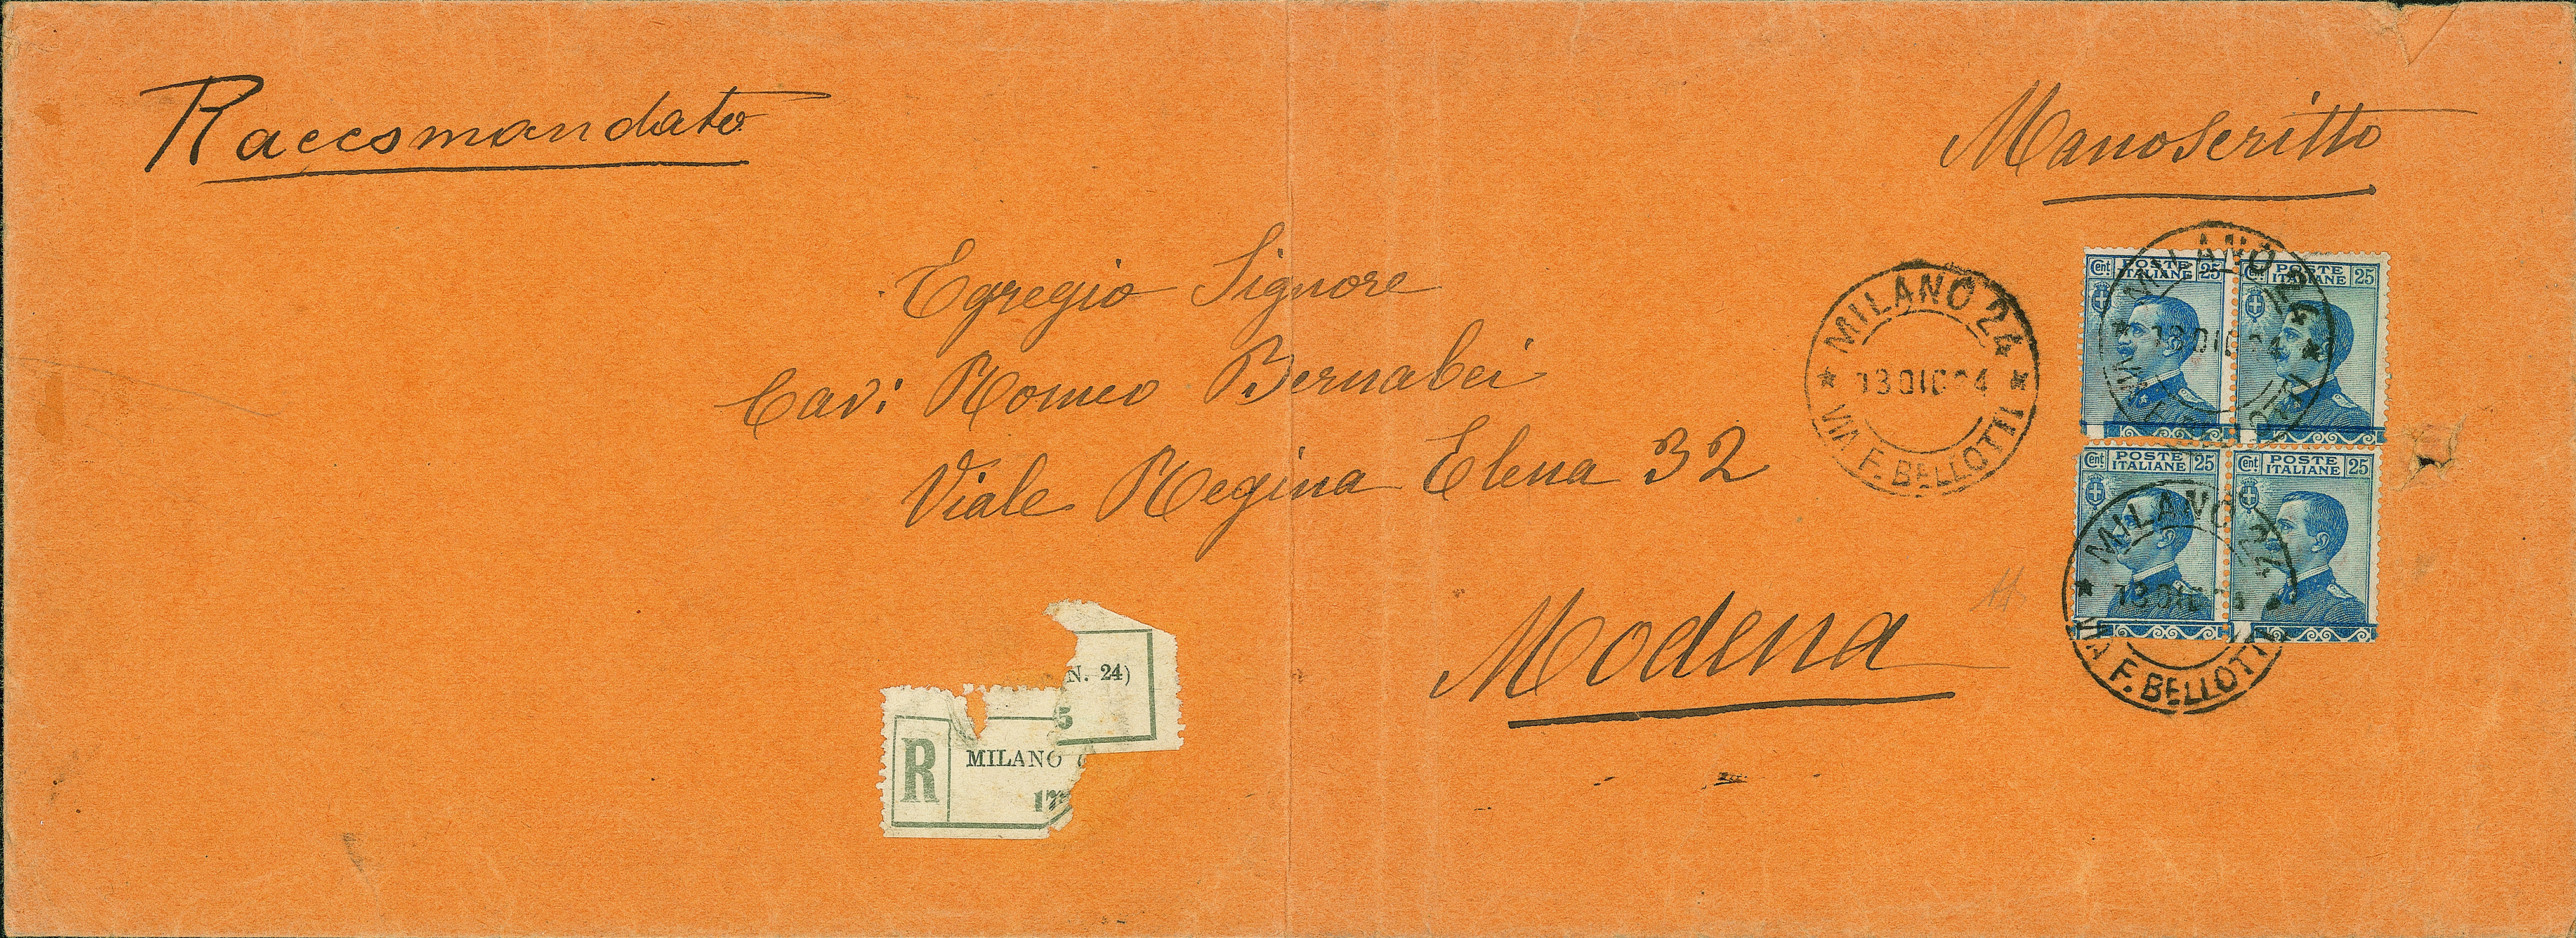 Raccomandato
Manoscritto
Egregio Signore
Cav: Romeo Bernabei
Viale Regina Elena 32
Modena
MILANO 24
13 DIC 24
VIA F. BELLOTTI
Cent. POSTE ITALIANE 25
Cent. POSTE ITALIANE 25
MILANO 24
13 DIC 24
Cent. POSTE ITALIANE 25
Cent. POSTE ITALIANE 25
MILANO 24
13 DIC 24
VIA F. BELLOTTI
N. 24)
5
R
MILANO (
17